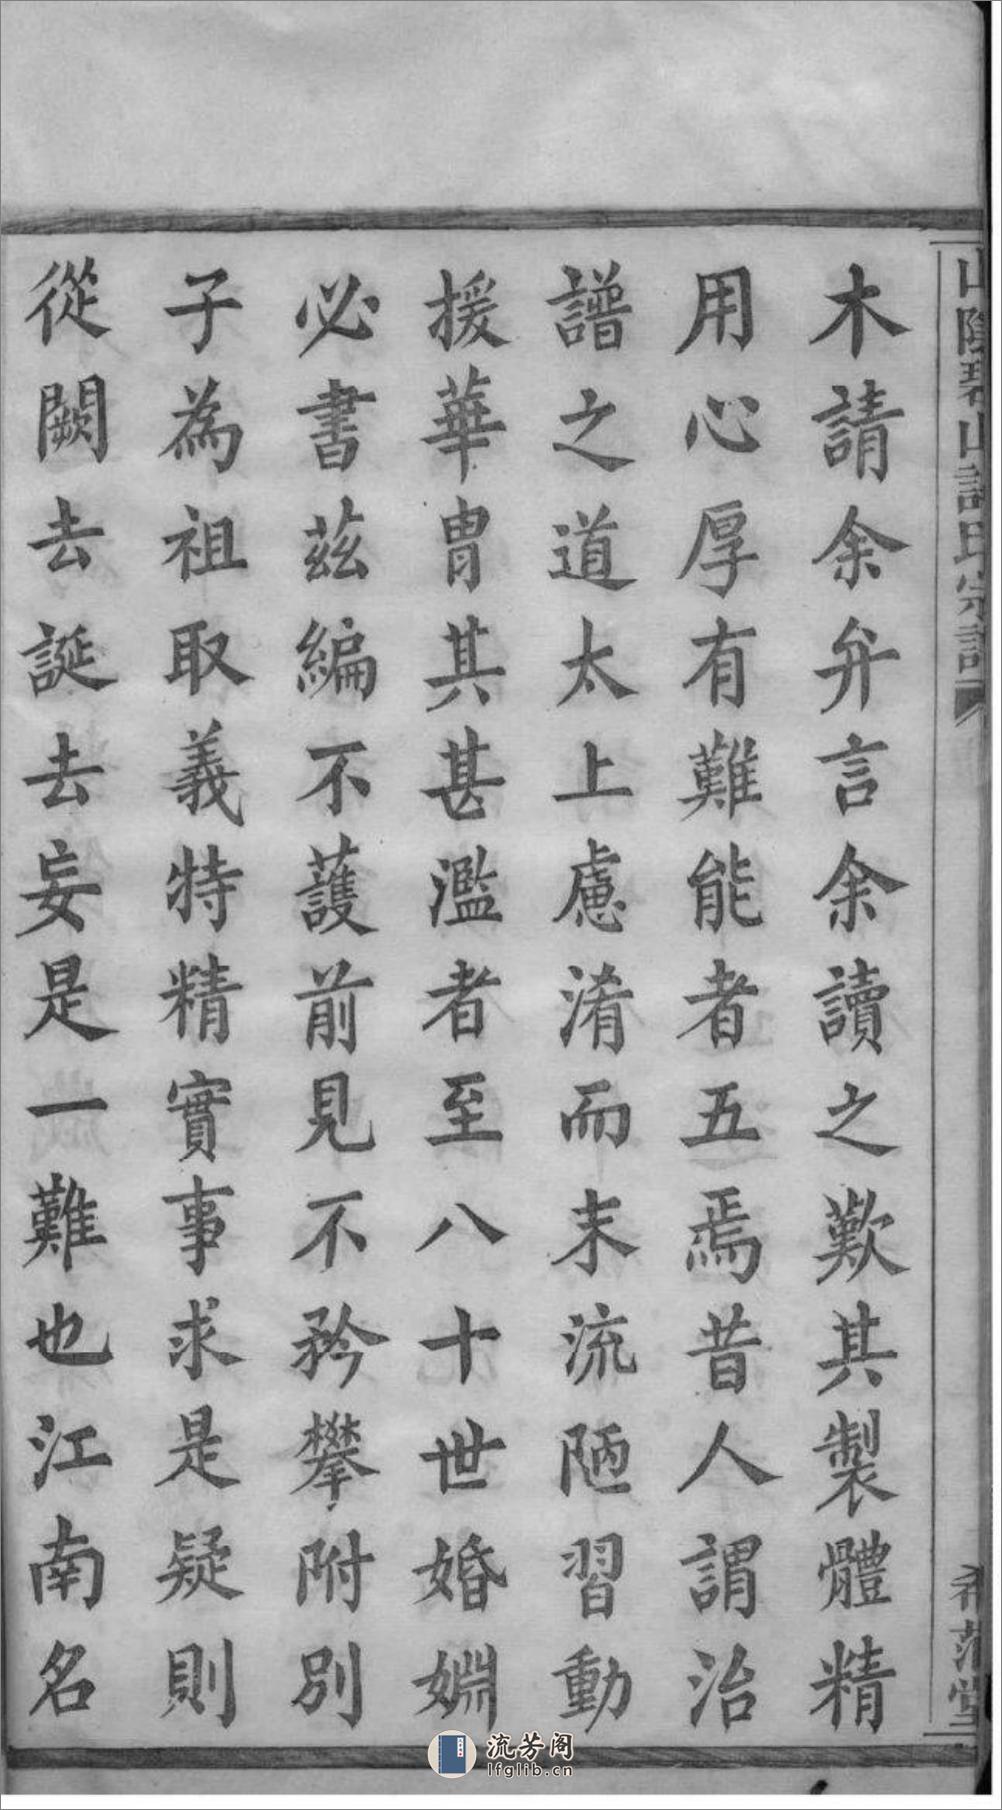 山陰碧山許氏宗譜
希范堂
木請余弁言余讀之歎其製體精
用心厚有難能者五焉昔人謂治
譜之道太上慮淆而末流陋習動
援華胄其甚濫者至八十世婚婣
必書茲編不護前見不矜攀附別
子為祖取義特精實事求是疑則
從闕去誕去妄是一難也江南名
流芳阁
lfglib.cn